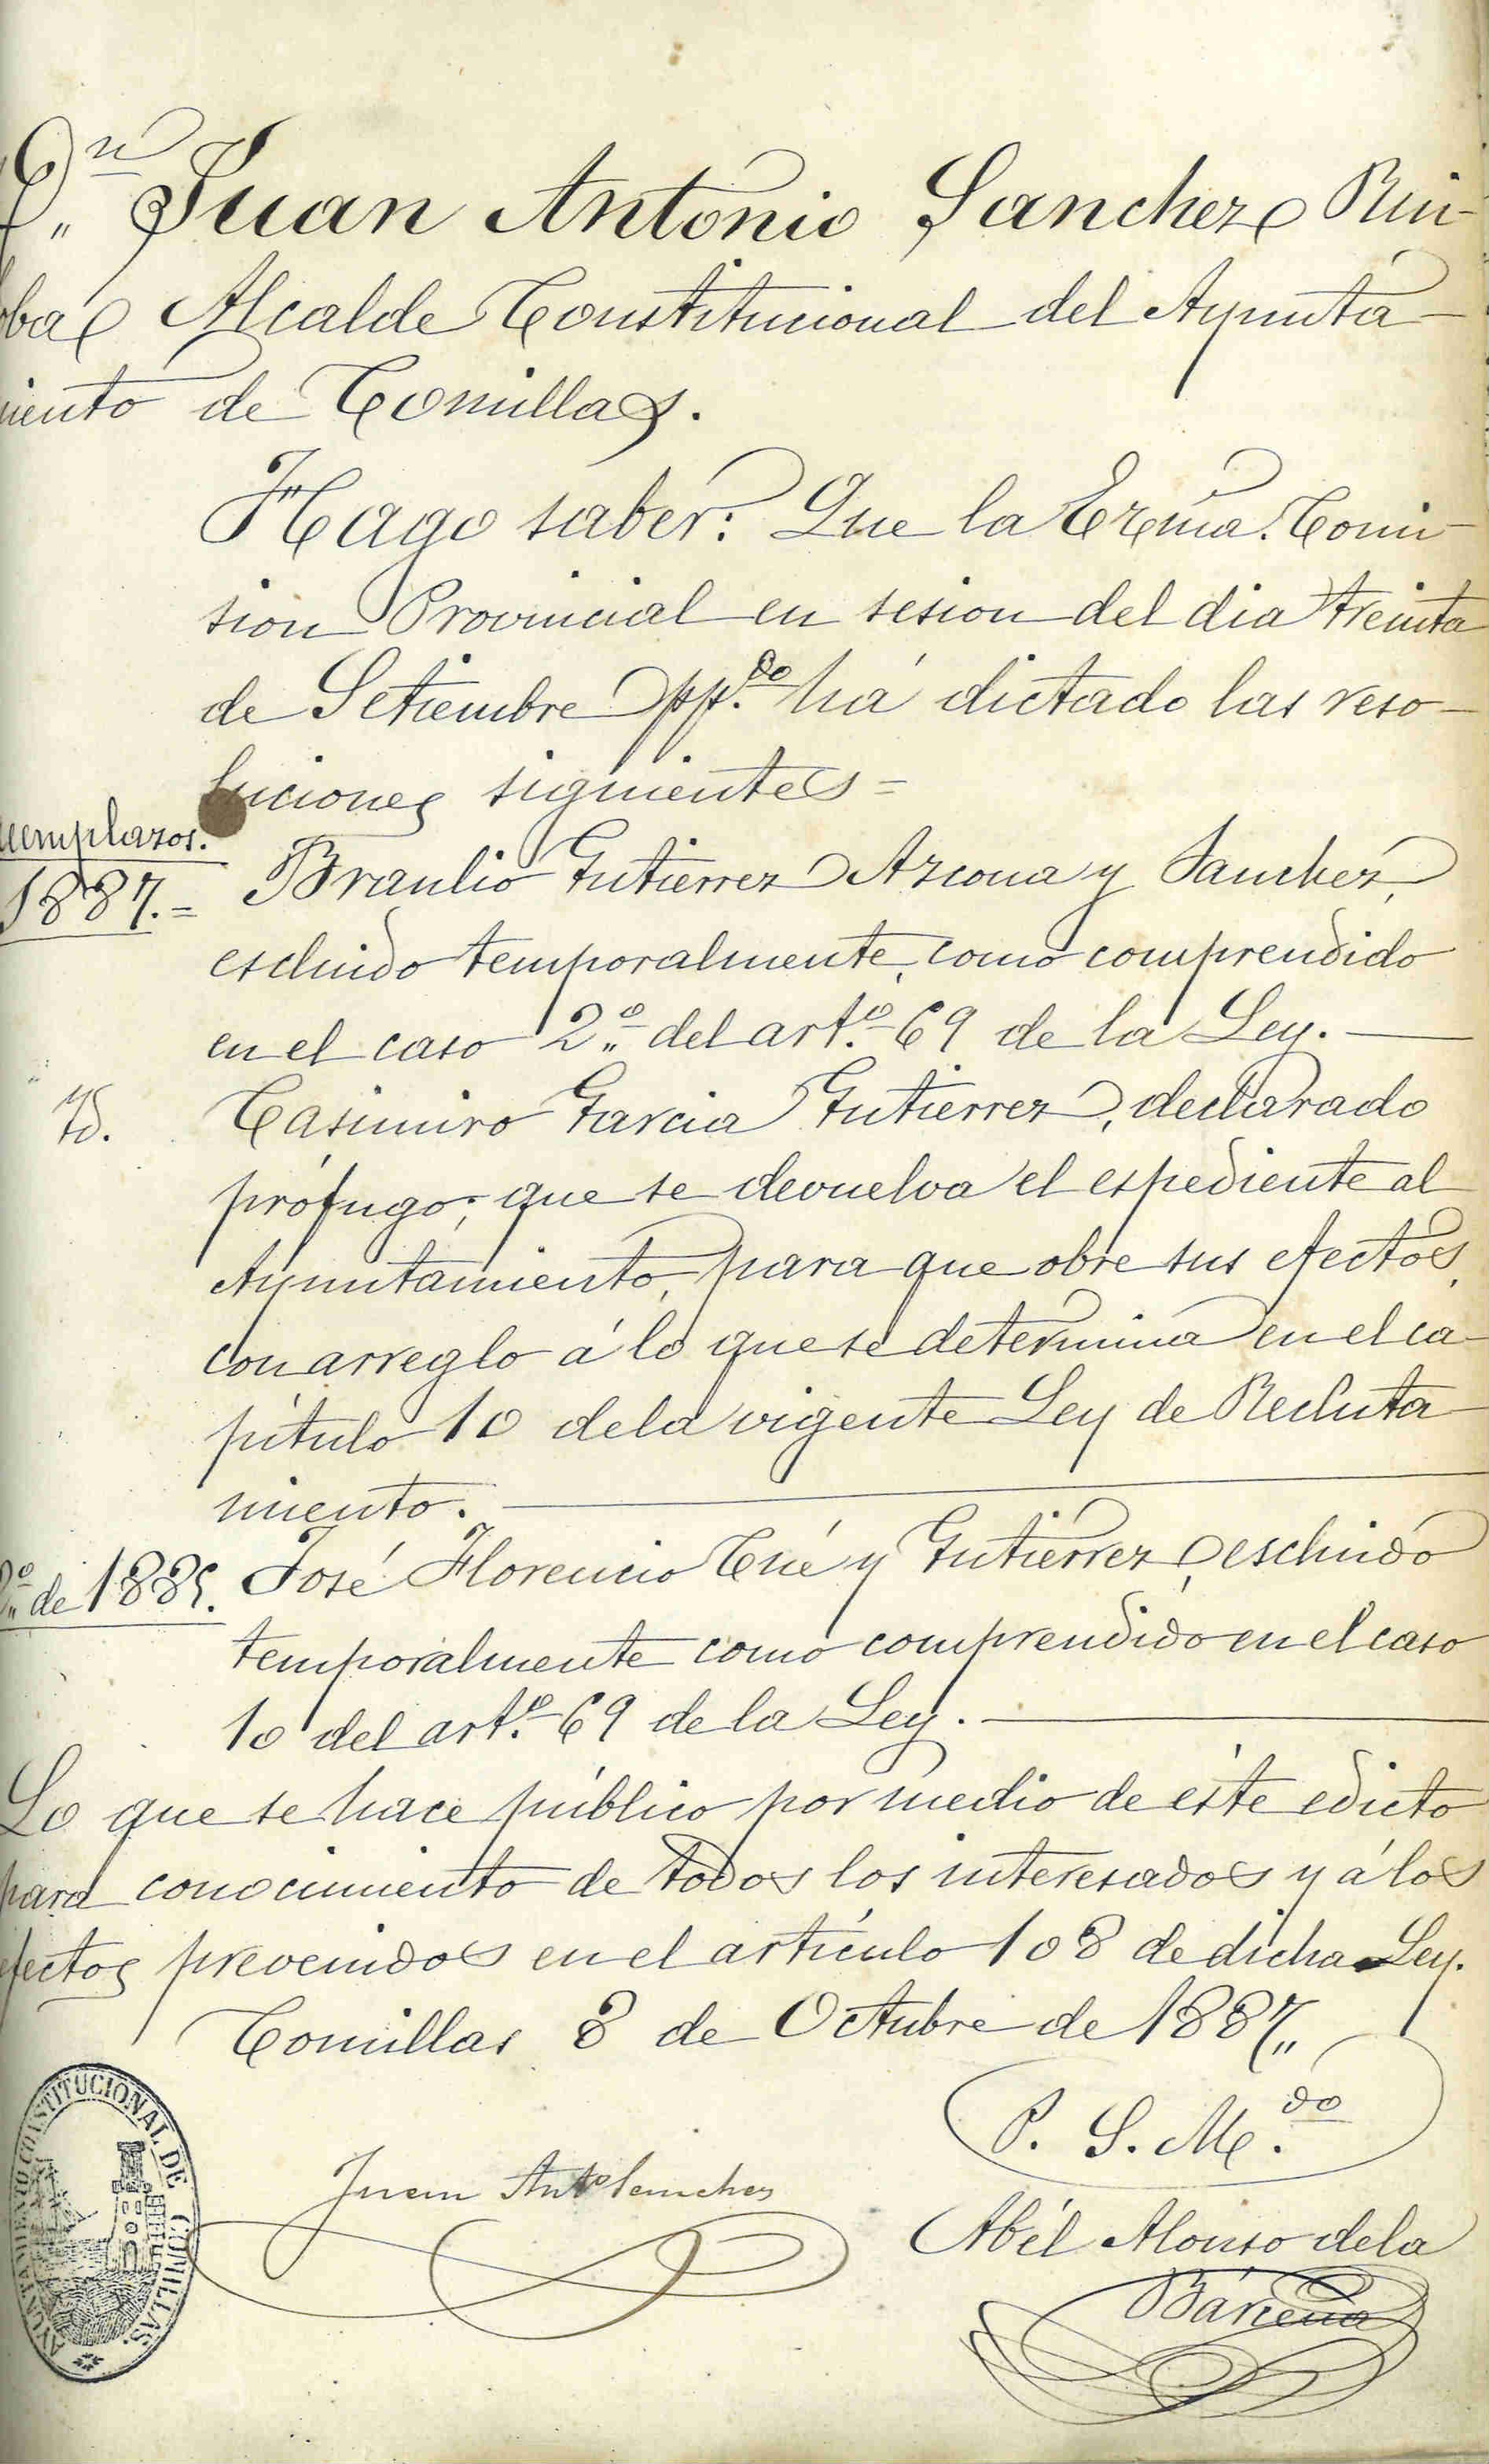 D.ⁿ Juan Antonio Sanchez Rui-
loba Alcalde Constitucional del Ayunta-
miento de Comillas.
Hago saber: Que la Exc̃ma. Comi-
sion Provincial en sesion del dia treinta
de Setiembre pp.ᵈᵒ há dictado las reso-
luciones siguientes=
Reemplazos.
1887.=
Braulio Gutierrez Azcona y Sanchez,
escluido temporalmente, como comprendido
en el caso 2.º del art.º 69 de la Ley.
Yd.
Casimiro Garcia Gutierrez, declarado
prófugo; que se devuelva el espediente al
Ayuntamiento, para que obre sus efectos,
con arreglo á lo que se determina en el ca-
pítulo 10 de la vigente Ley de Recluta-
miento.
2.º de 1885.
José Florencio Cué y Gutiérrez, escluido
temporalmente como comprendido en el caso
1º del art.º 69 de la Ley.
Lo que se hace público por medio de éste edicto
para conocimiento de todos los interesados y á los
efectos prevenidos en el artículo 108 de dicha Ley.
Comillas 8 de Octubre de 1887„
P. S. M.ᵈᵒ
Juan Antº Sanchez
Abél Alonso de la
Bárcena
AYUNTAMIENTO CONSTITUCIONAL DE COMILLAS.